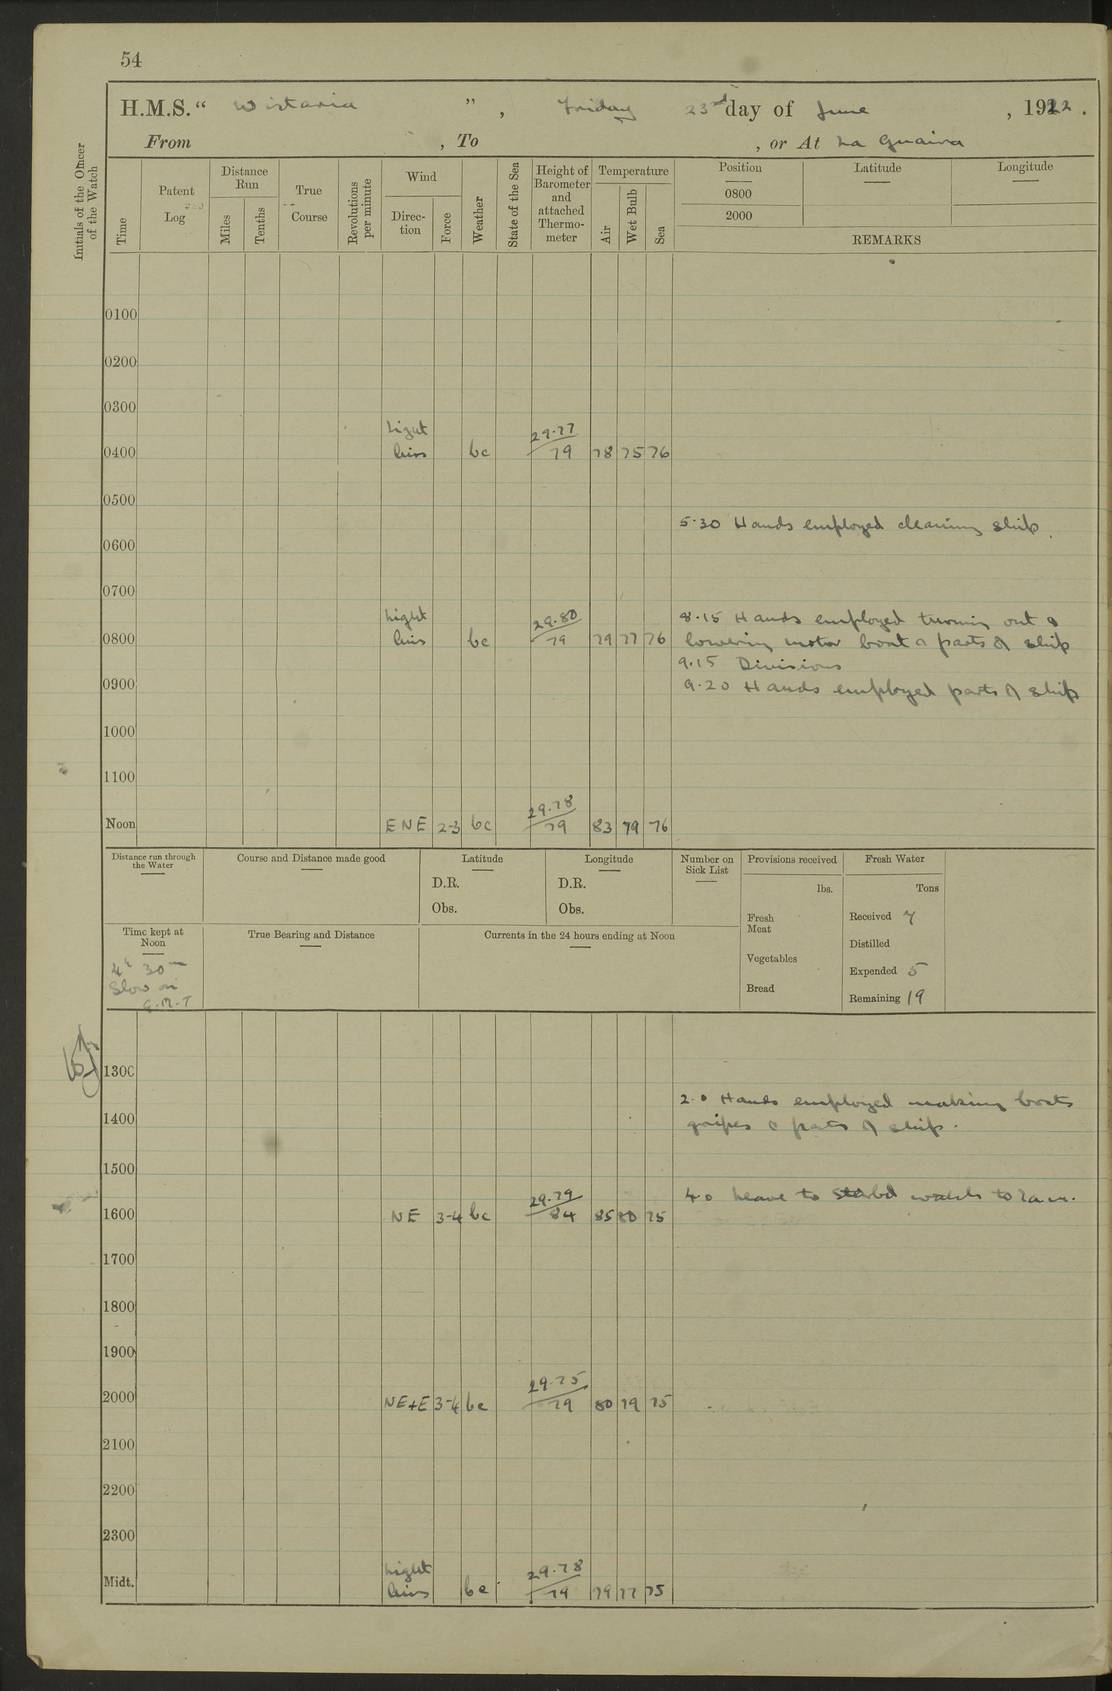 54
H.M.S. “ Wistaria ” , Friday 23rd day of June , 1922 .
From , To , or At La Guaira
Initials of the Officer of the Watch
Time
Patent Log
Distance Run
Miles
Tenths
True Course
Revolutions per minute
Wind
Direction
Force
Weather
State of the Sea
Height of Barometer and attached Thermometer
Temperature
Air
Wet Bulb
Sea
Position Latitude Longitude
0800
2000
REMARKS
0100
0200
0300
Light 29.77
0400 airs bc 79 78 75 76
0500
5.30 Hands employed cleaning ship.
0600
0700
Light 29.80 8.15 Hands employed turning out &
0800 airs bc 79 79 77 76 lowering motor boat & parts of ship
9.15 Divisions
0900 9.20 Hands employed parts of ship
1000
1100
29.78
Noon ENE 2-3 bc 79 83 79 76
Distance run through the Water
Course and Distance made good
Latitude
D.R.
Obs.
Longitude
D.R.
Obs.
Number on Sick List
Provisions received
lbs.
Fresh Meat
Vegetables
Bread
Fresh Water
Tons
Received 7
Distilled
Expended 5
Remaining 19
Time kept at Noon
4h 30m
Slow on
G.M.T
True Bearing and Distance
Currents in the 24 hours ending at Noon
1300
2.0 Hands employed making boats
1400 gripes & parts of ship.
1500
29.79 4.0 Leave to Starbd watch to 7 a.m.
1600 NE 3-4 bc 84 85 80 75
1700
1800
1900
29.75
2000 NE+E 3-4 bc 79 80 79 75
2100
2200
2300
Light 29.78
Midt. airs bc 79 79 77 75